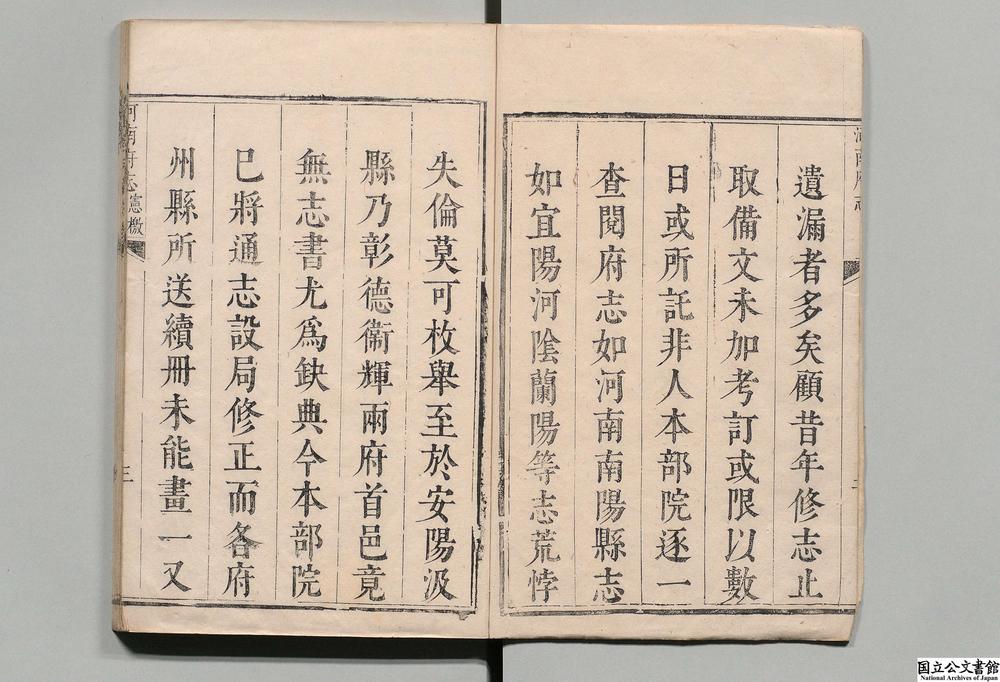 遺漏者多矣顧昔年修志止
取備文未加考訂或限以數
日或所託非人本部院逐一
查閱府志如河南南陽縣志
如宜陽河陰蘭陽等志荒悖
失倫莫可枚舉至於安陽汲
縣乃彰德衞輝兩府首邑竟
無志書尤爲鈌典今本部院
已將通志設局修正而各府
州縣所送續冊未能畫一又
河南府志 憲檄
三
国立公文書館
National Archives of Japan